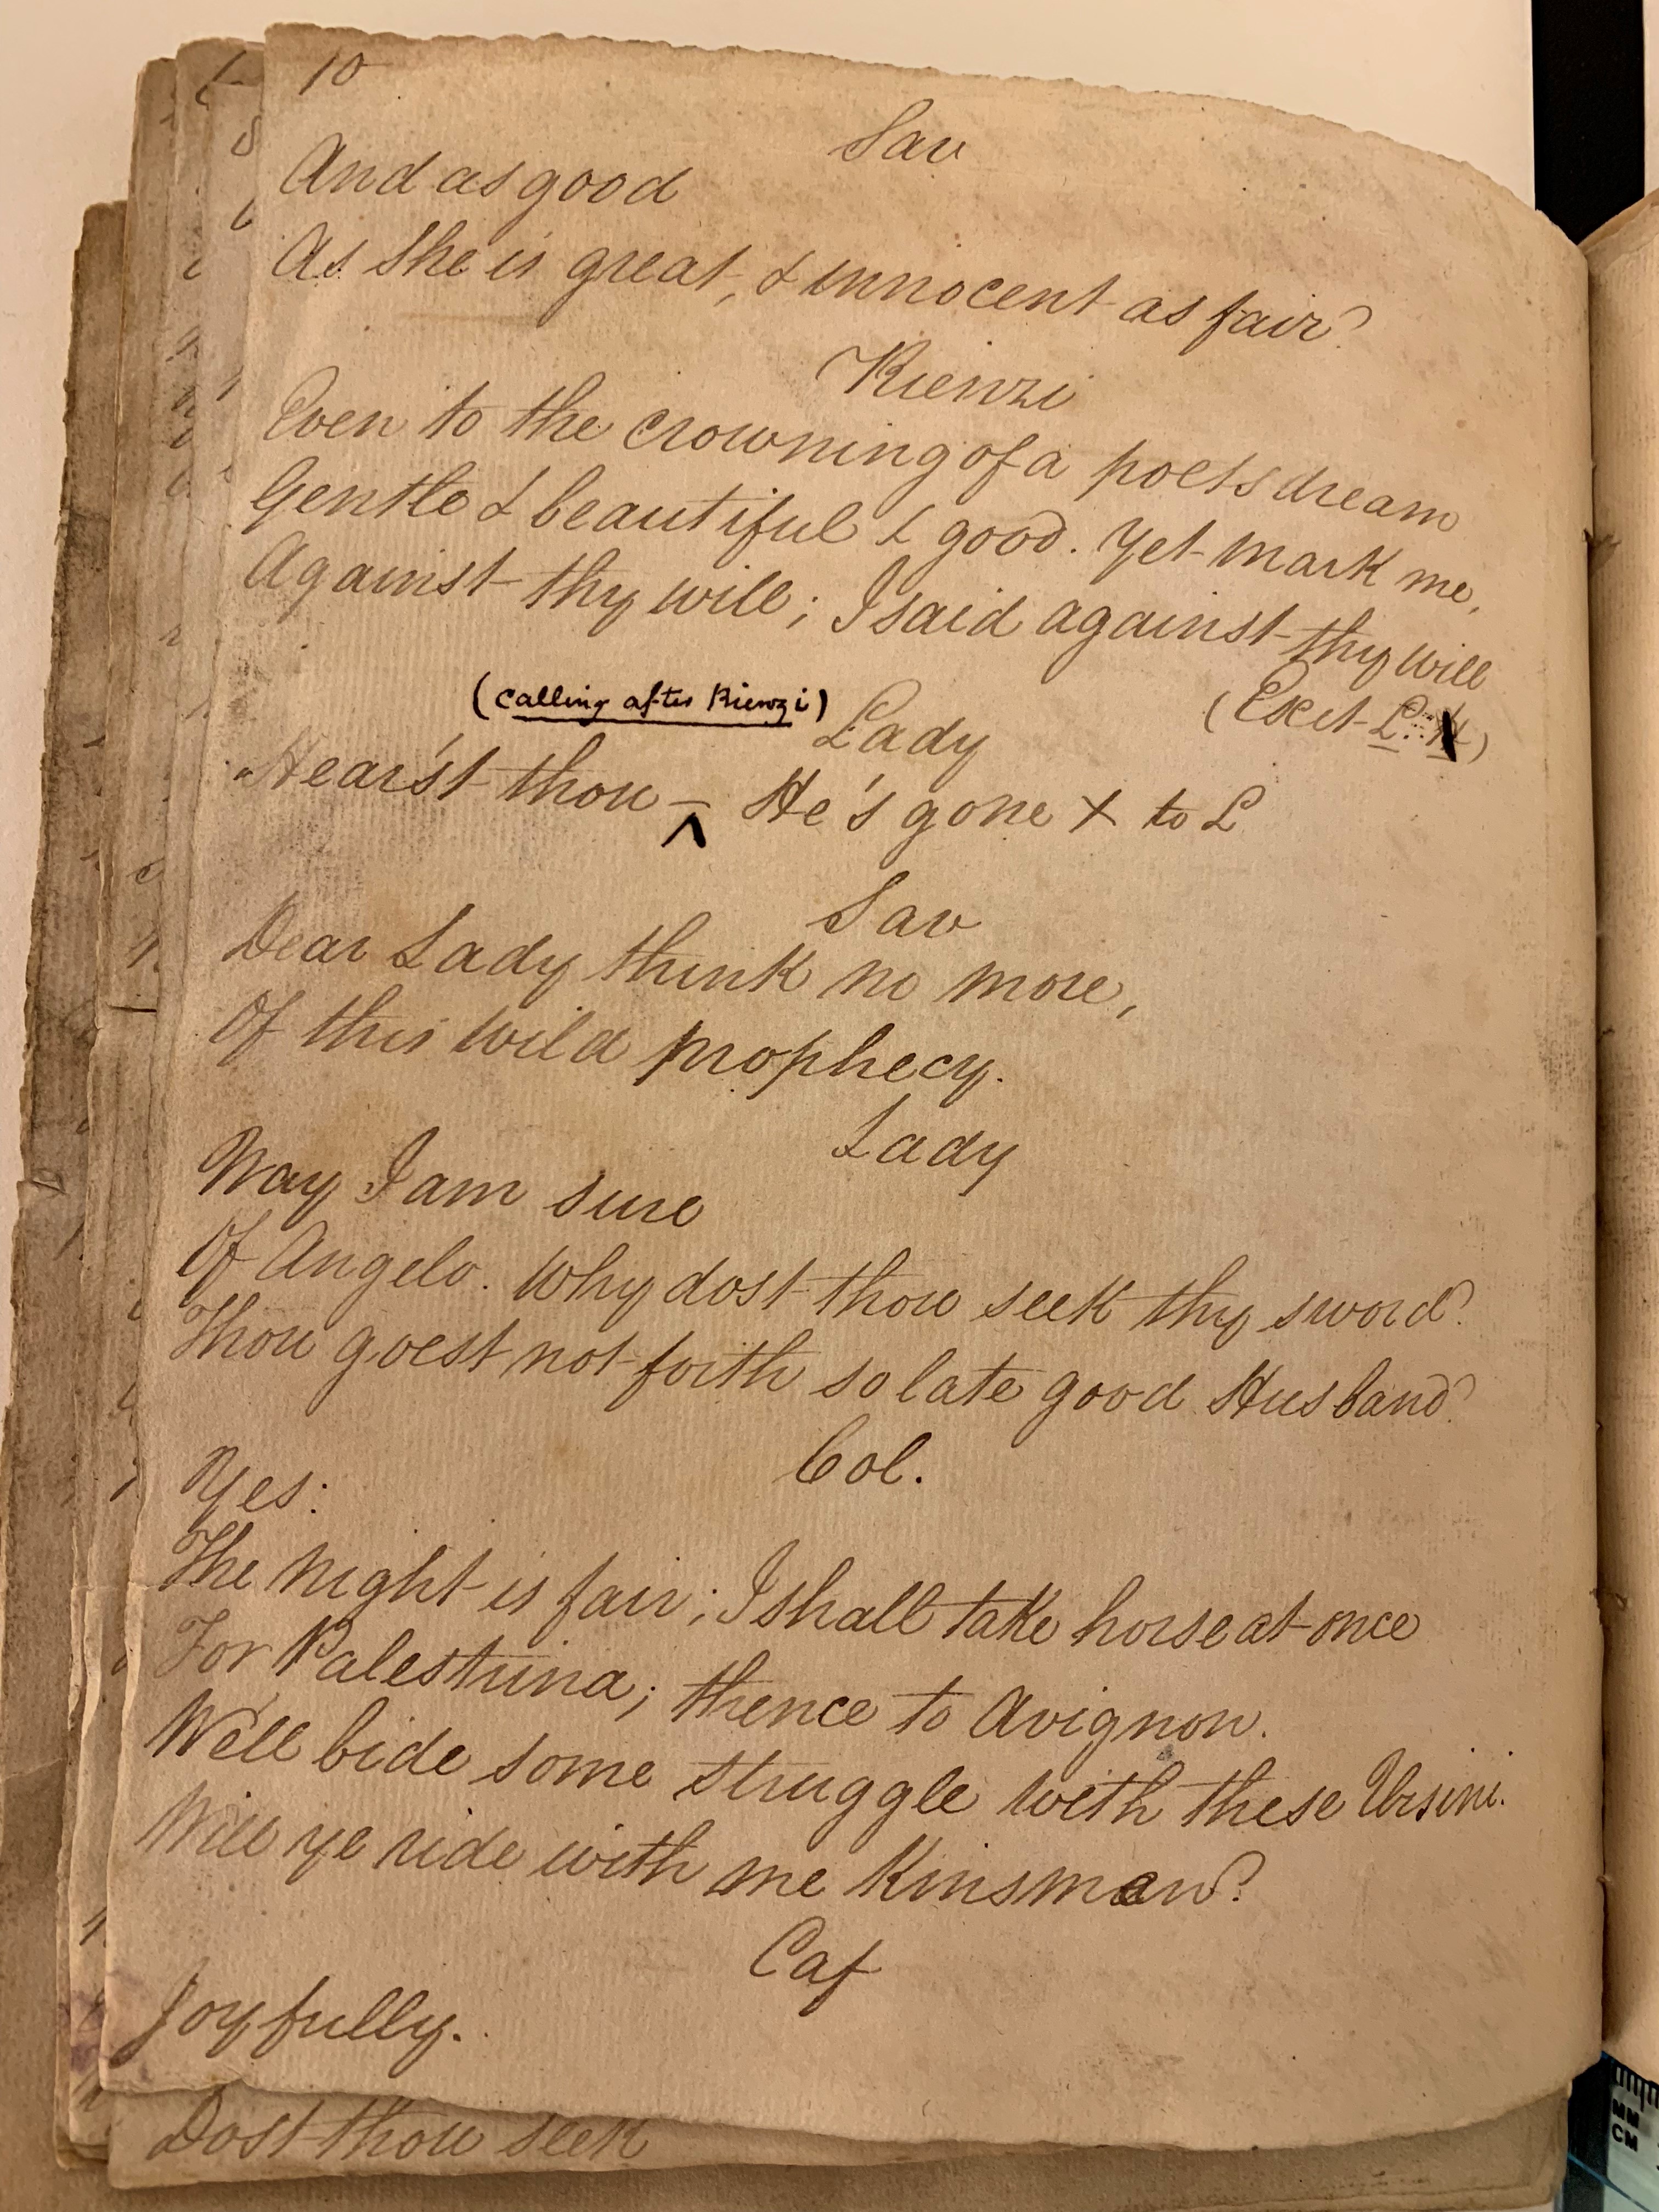 10
Sav
And as good
As She is great, & innocent as fair?
Rienzi
Even to the crowning of a poets dream
Gentle & beautiful & good. Yet mark me,
Against thy will; I said against thy will
(Exit L.
(calling after Rienzi)
Lady
Hear'st thou — He's gone X to L
Sav
Dear Lady think no more,
Of this wild prophecy.
Lady
Nay I am sure
Of Angelo. Why dost thou seek thy sword?
Thou goest not forth so late good Husband?
Col.
Yes:
The night is fair; I shall take horse at once
For Palestrina; thence to Avignon.
We'll bide some struggle with these Ursini.
Will ye ride with me Kinsmen?
Caf
Joyfully.
Dost thou seek
MM
CM